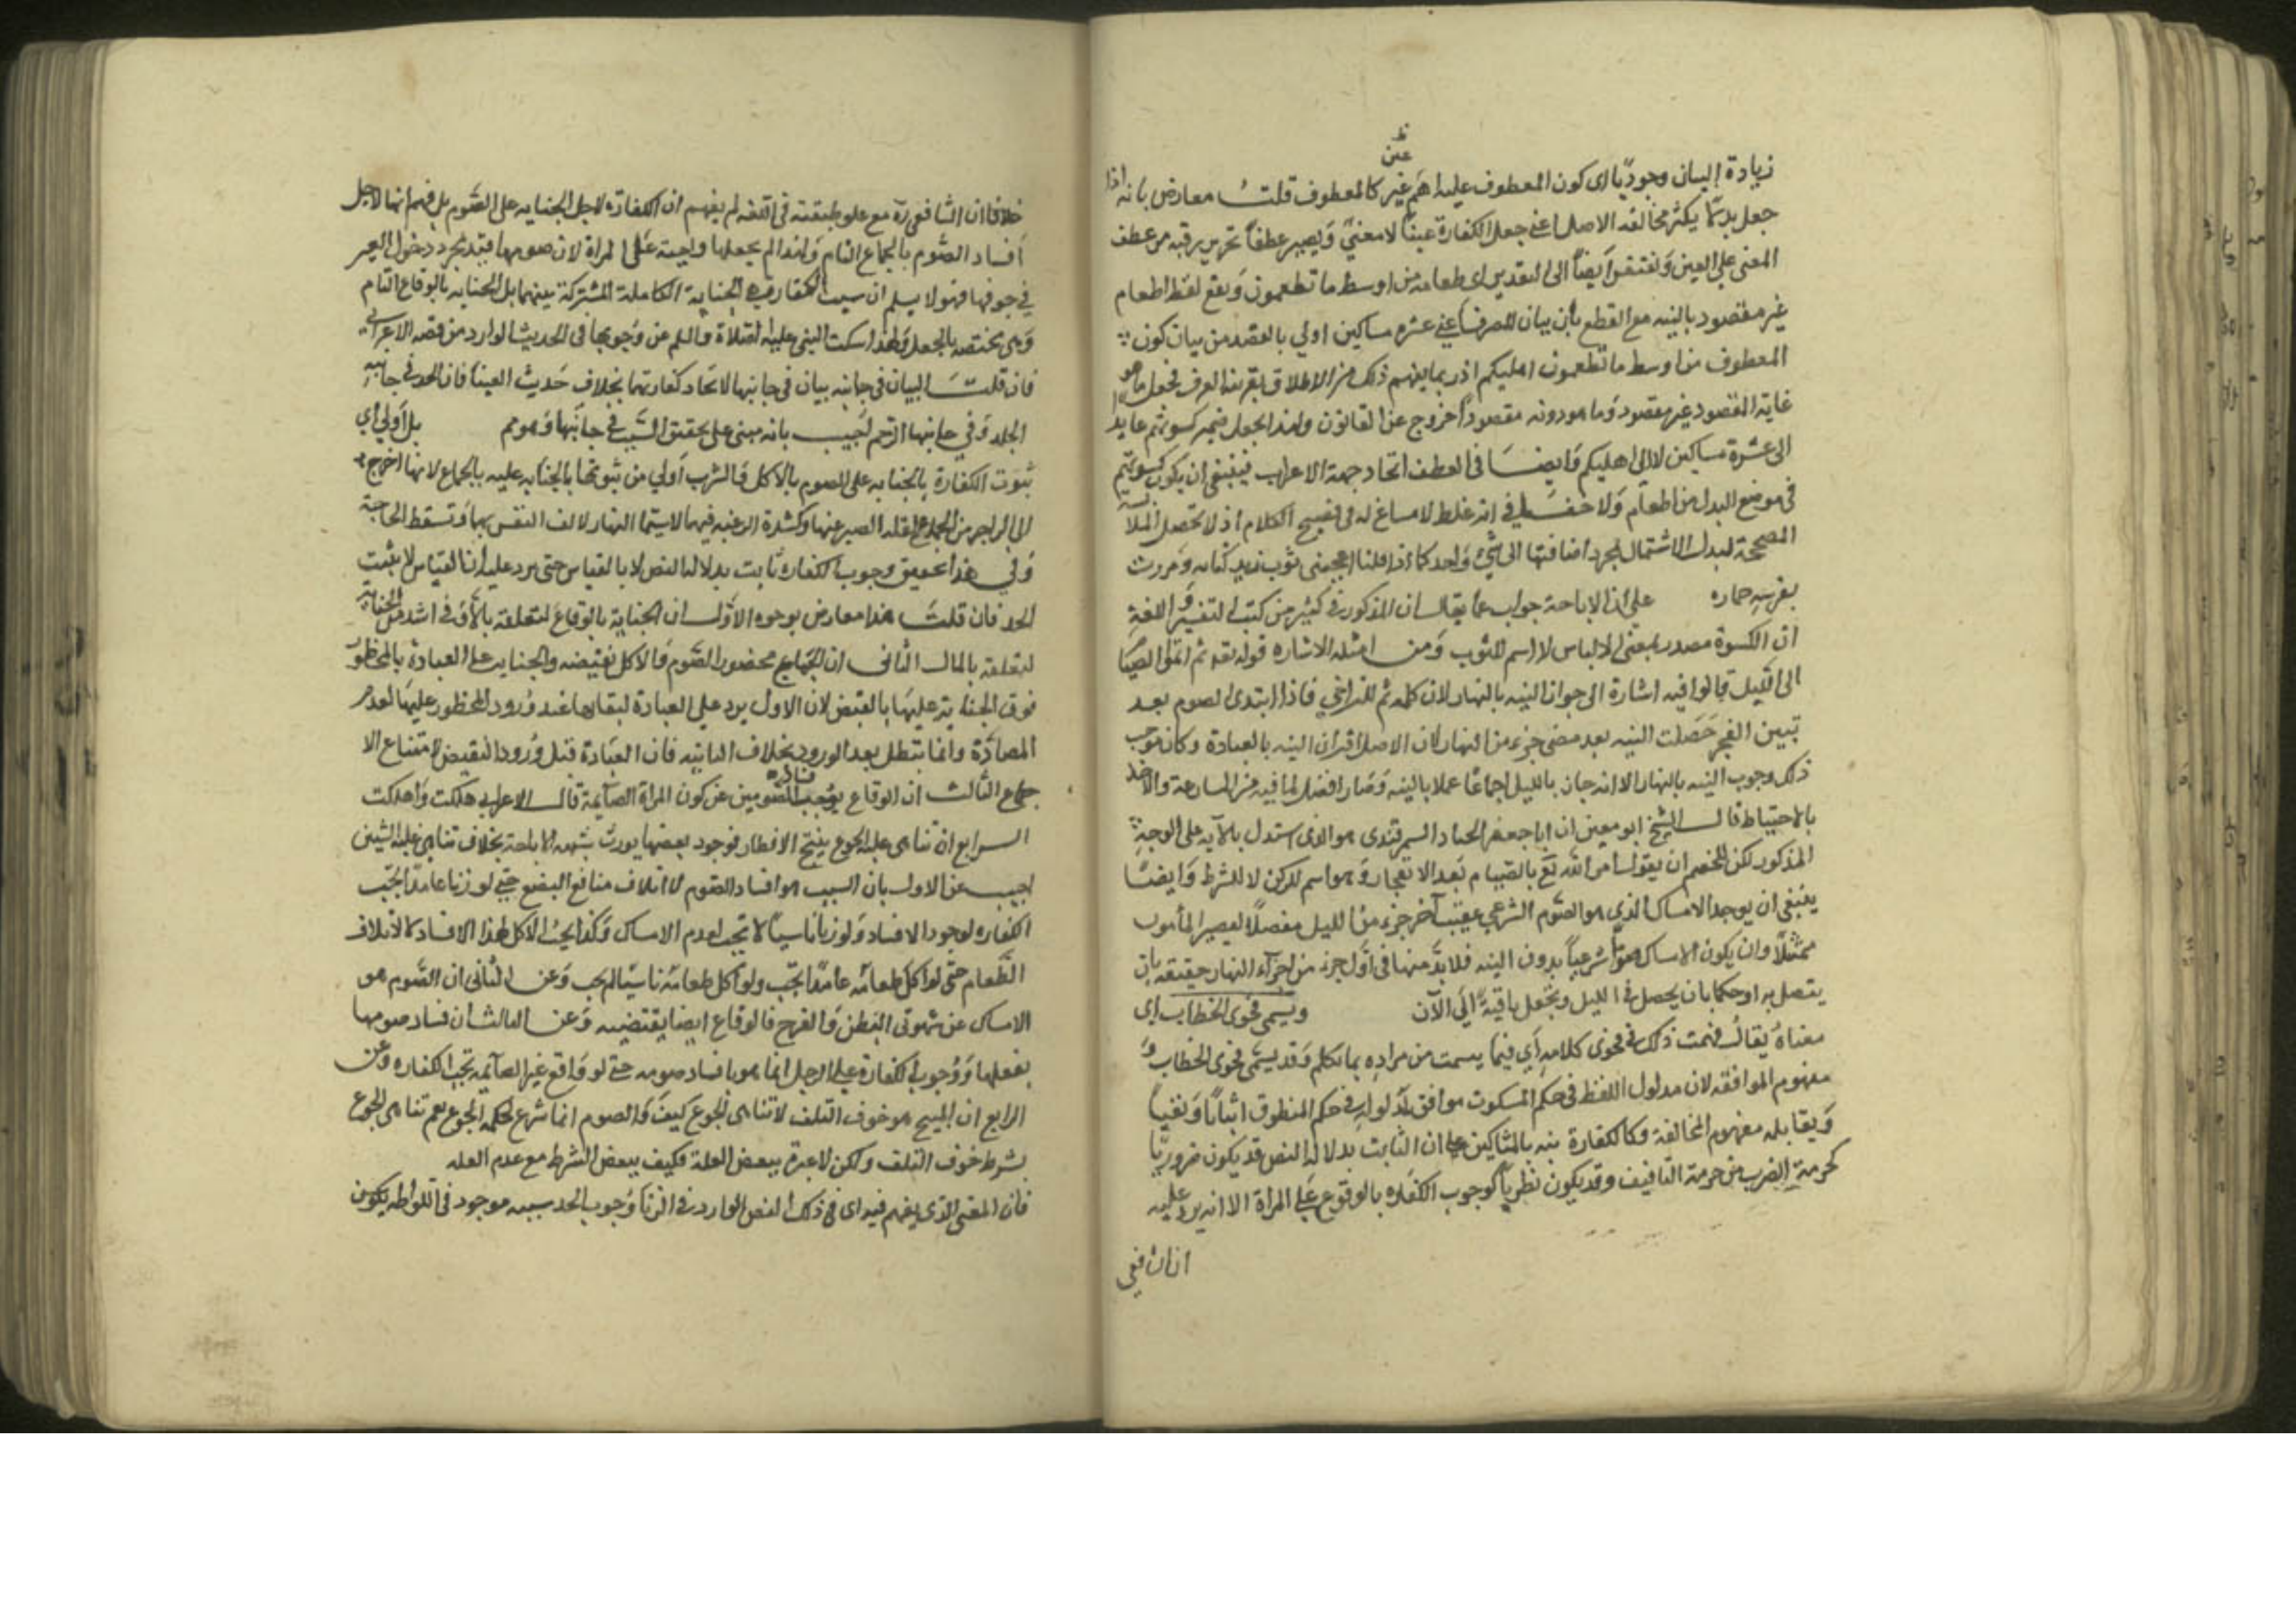 زيادة البيان وجودًا اى كون المعطوف عليه اهم غير كالمعطوف قلت معارض بانه اذا
عين
جعل بدلا يكثر مخالفة الاصل اعنى جعل الكفارة عينًا لا معنى ويصير عطف تحرير رقبة من عطف
المعنى على العين ويفتقر ايضًا الى التقدير اى طعامه من اوسط ما تطعمون ويقع لفظ اطعام
غير مقصود بالنسبه مع القطع بان بيان المصرف اعنى عشره مساكين اولى بالقصد من بيان كون
المعطوف من اوسط ما تطعمون اهليكم اذ ربما يفهم ذلك من الاطلاق بقرينة العرف فجعل ما هو
غاية المقصود غير مقصود وما هو دونه مقصودًا خروج عن القانون ولهذا يجعل ضمير كسوتهم عايدا
الى عشرة مساكين لا الى اهليكم وايضا فى العطف اتحاد جهة الاعراب فينبغى ان يكون كسوتهم
فى موضع البدل من اطعام ولا خفا فى انه غلط لا مساغ له فى فصيح الكلام اذ لا تحصل الملابسة
المصححة لبدل الاشتمال لمجرد اضافتها الى شئ واحد كما اذا قلنا اعجبنى ثوب زيد كتابه ومررت
بفرسه حماره على ان الاباحة جواب عما يقال ان المذكور فى كثير من كتب التفسير واللغة
ان الكسوة مصدر بمعنى الالباس لا اسم للثوب ومن امثله الاشاره قوله تع ثم اتموا الصيام
الى الليل قالوا فيه اشارة الى جواز النيه بالنهار لان كلمه ثم للتراخى فاذا ابتدى الصوم بعد
تبين الفجر حصلت النيه بعد مضى جزء من النهار لان الاصل اقتران النيه بالعبادة وكان موجب
ذلك وجوب النيه بالنهار الا انه جاز بالليل اجماعًا عملا بالسنه وصار افضل لما فيه من المسارعة والاخذ
بالاحتياط قال الشيخ ابو معين ان ابا جعفر الخباز السمرقندى هو الذى استدل بالآيه على الوجه
المذكور لكن للخصم ان يقول امر الله تع بالصيام بعد الانفجار وهو اسم للركن لا للشرط وايضًا
ينبغى ان يوجد الامساك الذى هو الصوم الشرعى عقيب آخر جزء من الليل متصلًا ليصير المأمور
ممتثلًا ولن يكون الامساك صومًا شرعيًا بدون النيه فلا بد منها فى اول جزء من اجزاء النهار حقيقه بان
يتصل به او حكما بان يحصل فى الليل وتجعل باقية الى الآن ويسمى فحوى الخطاب اى
معناه يقال فهمت ذلك فى فحوى كلامه اى فيما تسمت من مراده بما تكلم وقد يسمى لحن الخطاب و
مفهوم الموافقه لان مدلول اللفظ فى حكم المسكوت موافق لمدلوله فى حكم المنطوق اثباتًا ونفيًا
ويقابله مفهوم المخالفة وكالكفارة نبه بالمثالين على ان الثابت بدلاله النص قد يكون ضروريًا
كحرمة الضرب من حرمة التافيف وقد يكون نظريًا كوجوب الكفاره بالوقوع على المراة الا انه يرد عليه
ان الشافعى
خلافا ان الشافعى رح مع علو طبقته فى اللغه لم يفهم ان الكفارة لاجل الجنايه على الصوم بل فهم انها لاجل
افساد الصوم بالجماع التام ولهذا لم يجعلها واجبة على المراة لان صومها يفسد بمجرد دخول
فى جوفها فهو لا يسلم ان سبب الكفارة هى الجناية الكاملة المشتركة بينهما بل الجنايه بالوقاع التام
وهى مختصه بالرجل ولهذا سكت النبى عليه الصلاة والسلم عن وجوبها فى الحديث الوارد من قصه الاعرابى
فان قلت البيان فى جانبه بيان فى جانبها لاتحاد كفارتهما بخلاف حديث العسيف فان الحد فى جانبه
الجلد وفى جانبها الرجم اجيب بانه مبنى على تحقق السبب فى جانبها وهو مم بل اولى اى
ثبوت الكفارة بالجنايه على الصوم بالاكل والشرب اولى من ثبوتها بالجنايه عليه بالجماع لانها احوج
الى الزاجر من الجماع لقله الصبر عنها وكثرة الرغبه فيها لا سيما النهار لالف النفس بها وتسقط الحاجة
وفى هذا تحقيق وجوب الكفاره ثابت بدلاله النص لا بالقياس حتى يرد عليه ان القياس لا يثبت
الحد فان قلت هذا معارض بوجوه الاول ان الجناية بالوقاع لتعلقه بالآدمى اشد من الجناية
لتعلقه بالمال الثانى ان الجماع محظور الصوم والاكل نقيضه والجنايه على العبادة بالمحظور
فوق الجنايه عليها بالنقيض لان الاول يرد على العبادة لبقائها عند ورود المحظور عليها لعدم
المضادة وانما تبطل بعد الورود بخلاف الثانيه فان العبادة قبل ورود النقيض لامتناع الا
جتماع الثالث ان الوقاع يوجب فساد الصومين عن كون المراة الصايمة قال الاعرابى هلكت واهلكت
الرابع ان تناهى غلبه الجوع يبيح الافطار فوجود بعضها يورث شبهه الاباحة بخلاف تناهى غلبه الشبق
اجيب عن الاول بان السبب هو افساد الصوم لا اتلاف منافع البضع حتى لو زنا عامدًا يجب
الكفاره لوجود الافساد ولو زنا ناسيًا لا تجب لعدم الامساك وكذا يجب الاكل لهذا الافساد لا لاتلاف
الطعام حتى لو اكل طعامه عامدًا يجب ولو اكل طعامه ناسيًا لم يجب وعن الثانى ان الصوم هو
الامساك عن شهوتى البطن والفرج فالوقاع ايضا يقتضيه وعن الثالث ان فساد صومها
بفعلها ووجوب الكفارة على الرجل انما هو بافساد صومه حتى لو واقع غير الصايمه تجب الكفاره وعن
الرابع ان المبيح هو خوف التلف لا تناهى الجوع كيف والصوم انما شرع لحكمه الجوع نعم تناهى الجوع
بشرط خوف التلف ولكن لا عبرة ببعض العلة فكيف ببعض الشرط مع عدم العله
فان المعنى الذى يفهم فيه اى فى ذلك النص الوارد فى الزنا وجوب الحد بسببه موجود فى اللواطه يكون